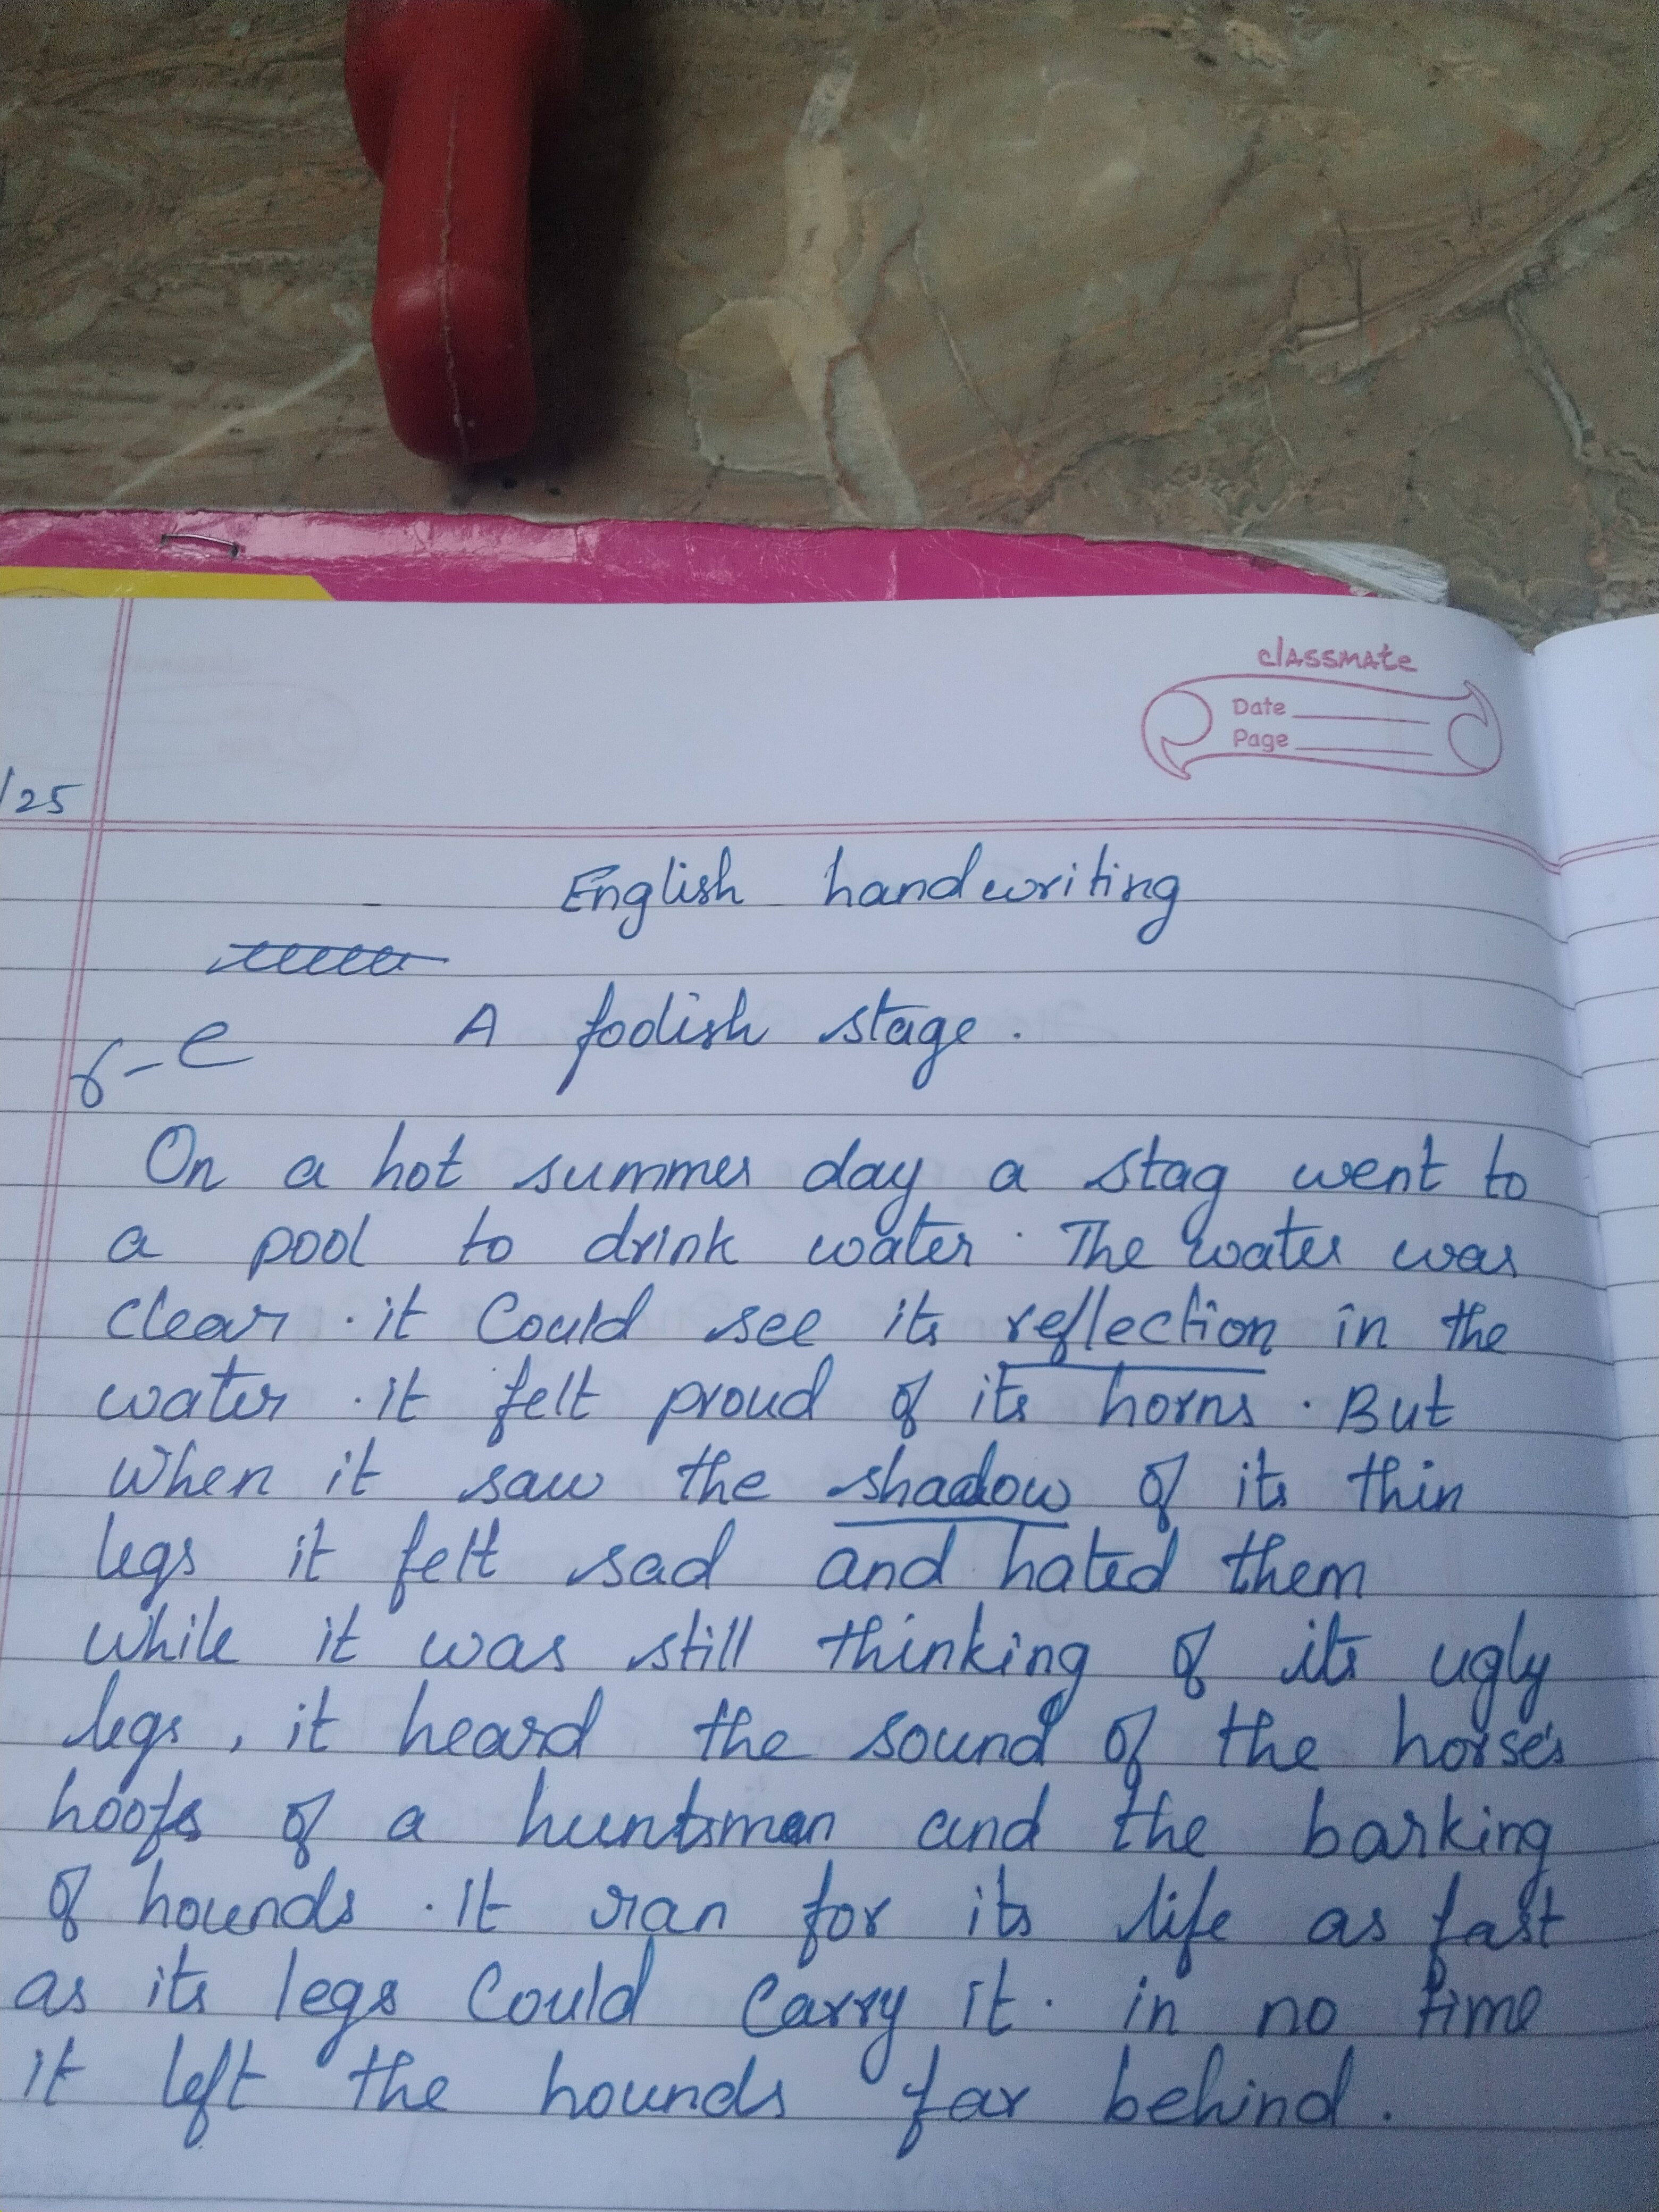 classmate
Date
Page
/25
English handwriting
A foolish stage.
6-e
On a hot summer day a stag went to
a pool to drink water. The water was
clear. it Could see its reflection in the
water. it felt proud of its horns. But
when it saw the shadow of its thin
legs it felt sad and hated them
while it was still thinking of its ugly
legs, it heard the sound of the horse's
hoofs of a huntsman and the barking
of hounds. It ran for its life as fast
as its legs Could Carry it. in no time
it left the hounds far behind.